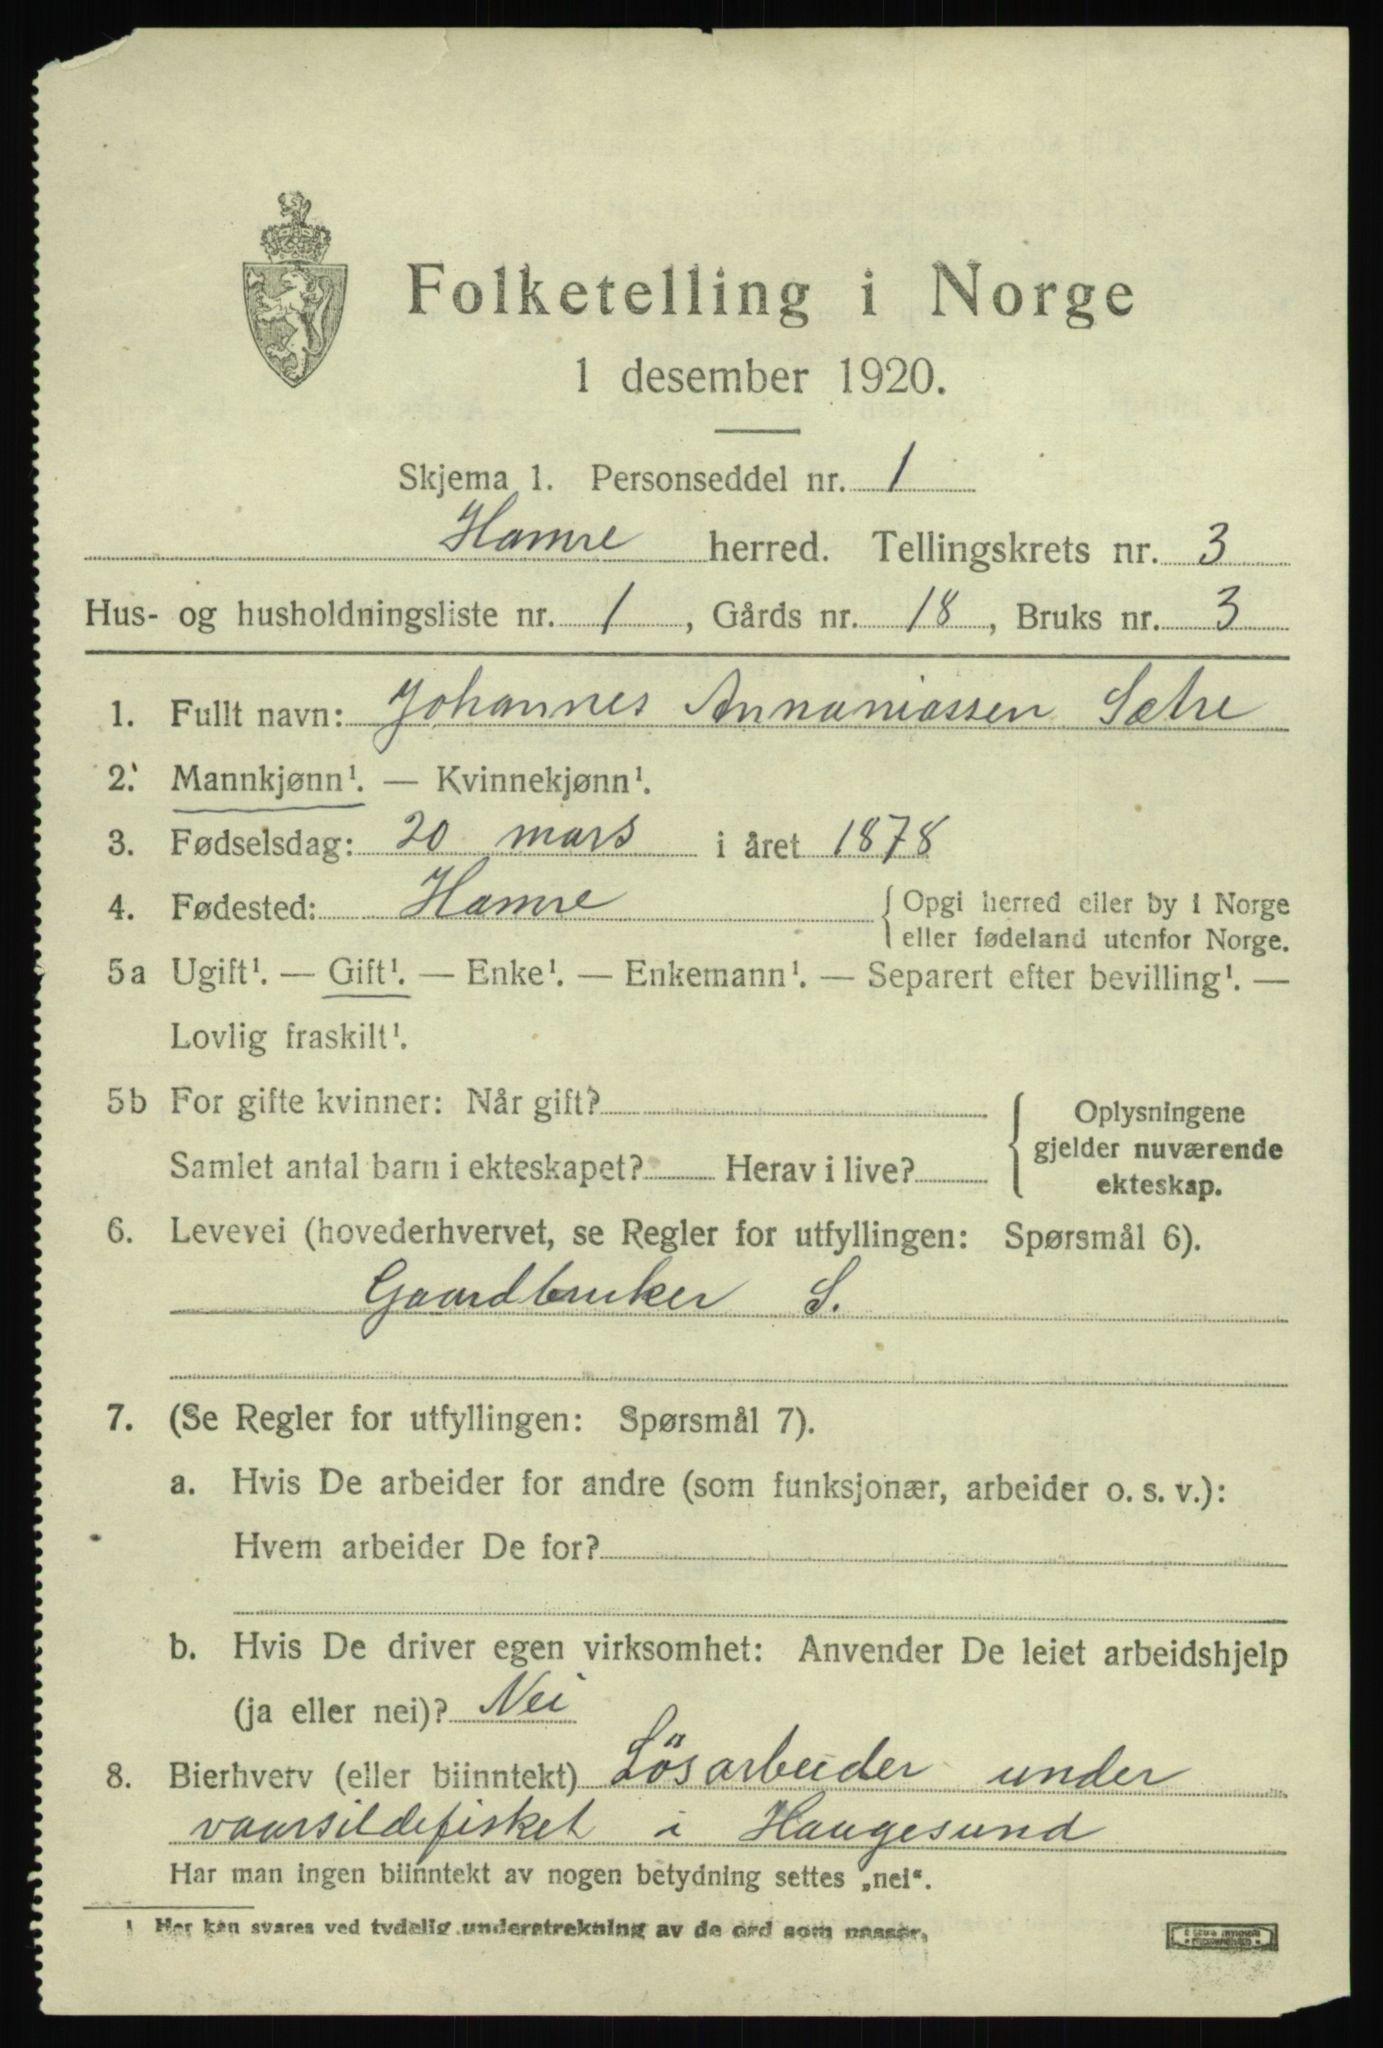 Folketelling i Norge
1 desember 1920.
Skjema 1. Personseddel nr. 1
Hamre herred. Tellingskrets nr. 3
Hus- og husholdningsliste nr. 1, Gårds nr. 18, Bruks nr. 3
1. Fullt navn: Johannes Annaniassen Sætre
2. Mannkjønn¹. — Kvinnekjønn¹.
3. Fødselsdag: 20 mars i året 1878
4. Fødested: Hamre { Opgi herred eller by i Norge
eller fødeland utenfor Norge.
5a Ugift¹. — Gift¹. — Enke¹. — Enkemann¹. — Separert efter bevilling¹. —
Lovlig fraskilt¹.
5b For gifte kvinner: Når gift? { Oplysningene
gjelder nuværende
Samlet antal barn i ekteskapet? Herav i live?
ekteskap.
6. Levevei (hovederhvervet, se Regler for utfyllingen: Spørsmål 6).
Gaardbruker S.
7. (Se Regler for utfyllingen: Spørsmål 7).
a. Hvis De arbeider for andre (som funksjonær, arbeider o. s. v.):
Hvem arbeider De for?
b. Hvis De driver egen virksomhet: Anvender De leiet arbeidshjelp
(ja eller nei)? Nei
8. Bierhverv (eller biinntekt) Lösarbeider under
vaarsildefisket i Haugesund
Har man ingen biinntekt av nogen betydning settes „nei“.
1 Her kan svares ved tydelig understrekning av de ord som passer.